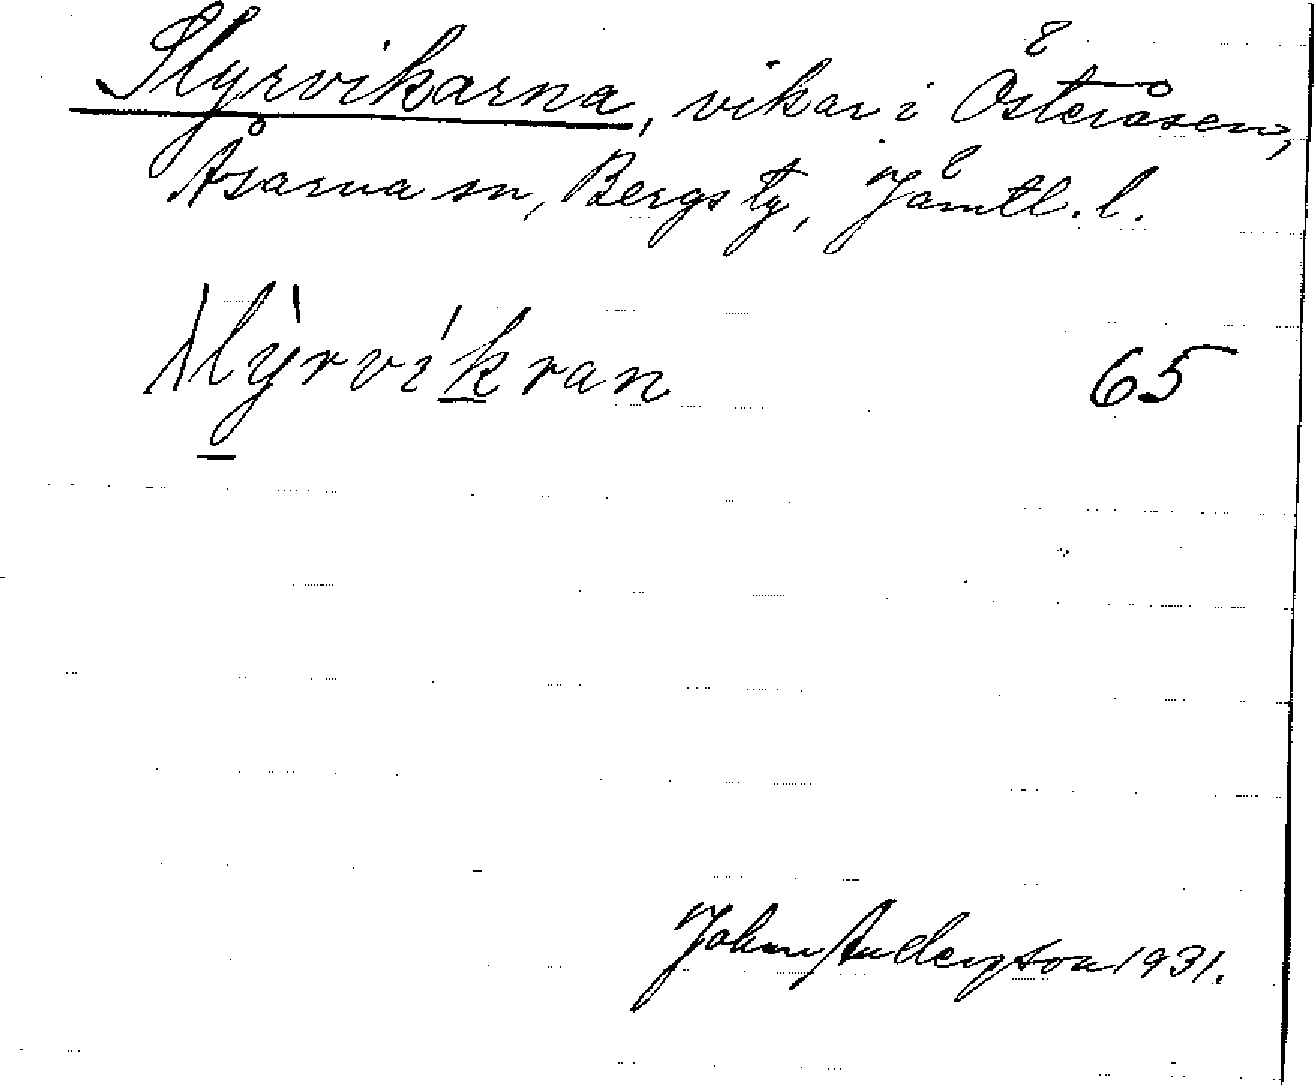 Slyrvikarna, vikar i Österåsen,
Åsarna sn, Bergs tg, Jämtl. l.
slỳrvíkran 65
Johan Andersson 1931.